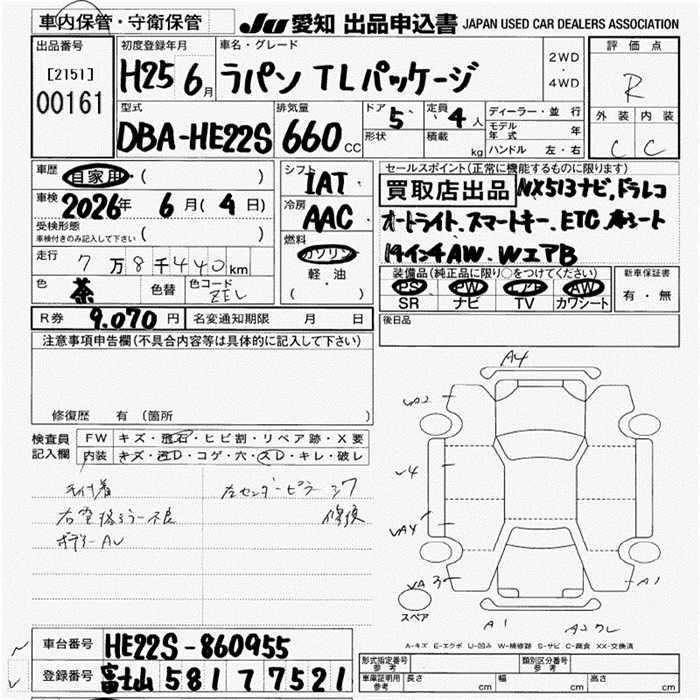 車内保管・守衛保管
JU 愛知 出品申込書 JAPAN USED CAR DEALERS ASSOCIATION
出品番号
[2151]
00161
初度登録年月
H25 6月
車名・グレード
ラパン TLパッケージ
2WD
・
4WD
評価点
R
外装 内装
C C
型式
DBA-HE22S
排気量
660cc
ドア 5
形状
定員 4人
積載 kg
ディーラー・並行
モデル年式 年
ハンドル 左・右
車歴
自家用・( )
車検
2026年 6月(4日)
受検形態
車検付きのみ記入して下さい ( )
走行
7万8千440km
色 茶 色替
色コード
ZEL
シフト
IAT
冷房
AAC
燃料
ガソリン
軽・油
( )
セールスポイント(正常に機能するものに限ります)
買取店出品 NX513ナビ.ドラレコ
オートライト.スマートキー.ETC.
14インチAW.WエアB
装備品(純正品に限り○をつけてください)
PS PW エアB AW
SR ナビ TV カワシート
新車保証書
有・無
R券 9.070円 名変通知期限 月 日
後日品
注意事項申告欄(不具合内容等は具体的に記入して下さい)
修復歴 有(箇所 )
検査員記入欄
FW キズ・飛石・ヒビ割・リペア跡・X要
内装 キズ・汚D・コゲ・穴・スD・キレ・破レ
左センターピラー
修復
ボデーAU
A4
A2
4
A4
A3
A1
スペア
A1
A2
A-キズ E-エクボ U-凹み W-補修跡 S-サビ C-腐食 XX-交換済
車台番号 HE22S-860955
登録番号 富士山 581 ワ 7521
型式指定番号
参考
類別区分番号
参考
車庫証明用
参考
長さ cm 幅 cm 高さ cm